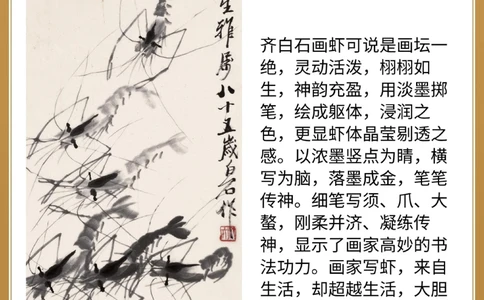 生雅屬八十五歲白石作
齐白石画虾可说是画坛一
绝，灵动活泼，栩栩如
生，神韵充盈，用淡墨掷
笔，绘成躯体，浸润之
色，更显虾体晶莹剔透之
感。以浓墨竖点为睛，横
写为脑，落墨成金，笔笔
传神。细笔写须、爪、大
螯，刚柔并济、凝练传
神，显示了画家高妙的书
法功力。画家写虾，来自
生活，却超越生活，大胆